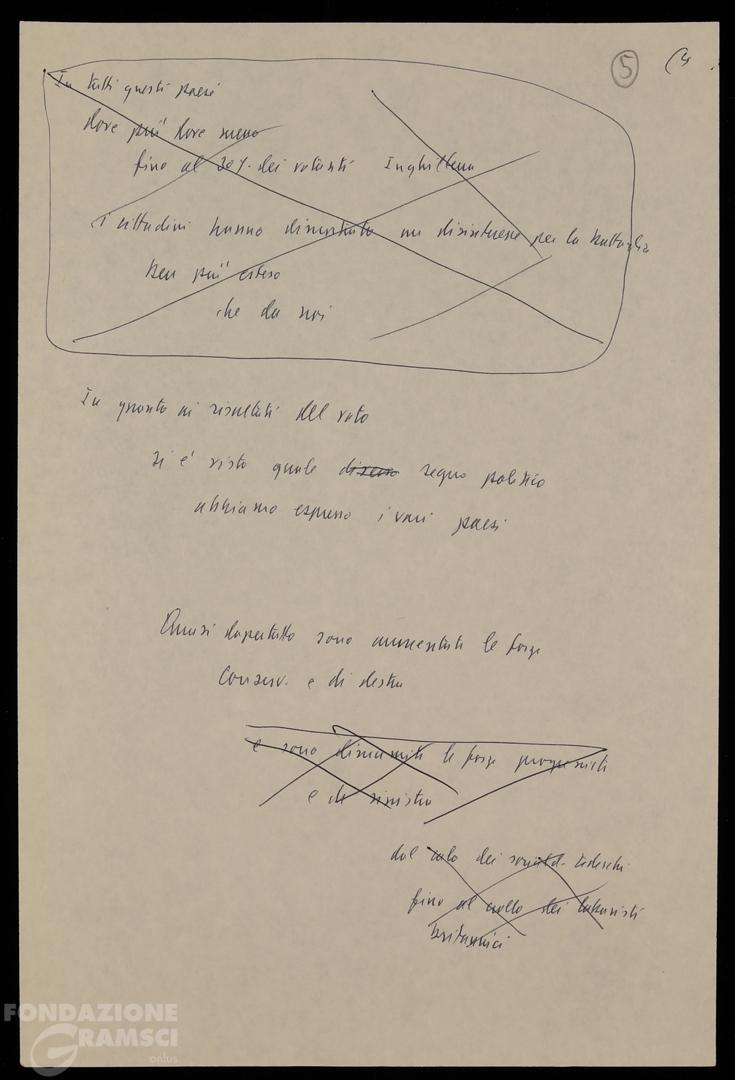 5
In tutti questi paesi
dove più dove meno
fino al 20% dei votanti Inghilterra
i cittadini hanno dimostrato un disinteresse per la battaglia
ben più esteso
che da noi
In quanto ai risultati del voto
si è visto quale diverso segno politico
abbiamo espresso i vari paesi
Quasi dapertutto sono aumentate le forze
conserv. e di destra
e sono diminuite le forze progressiste
e di sinistra
dal calo dei socialid. tedeschi
fino al crollo dei laburisti
britannici
FONDAZIONE
GRAMSCI
onlus